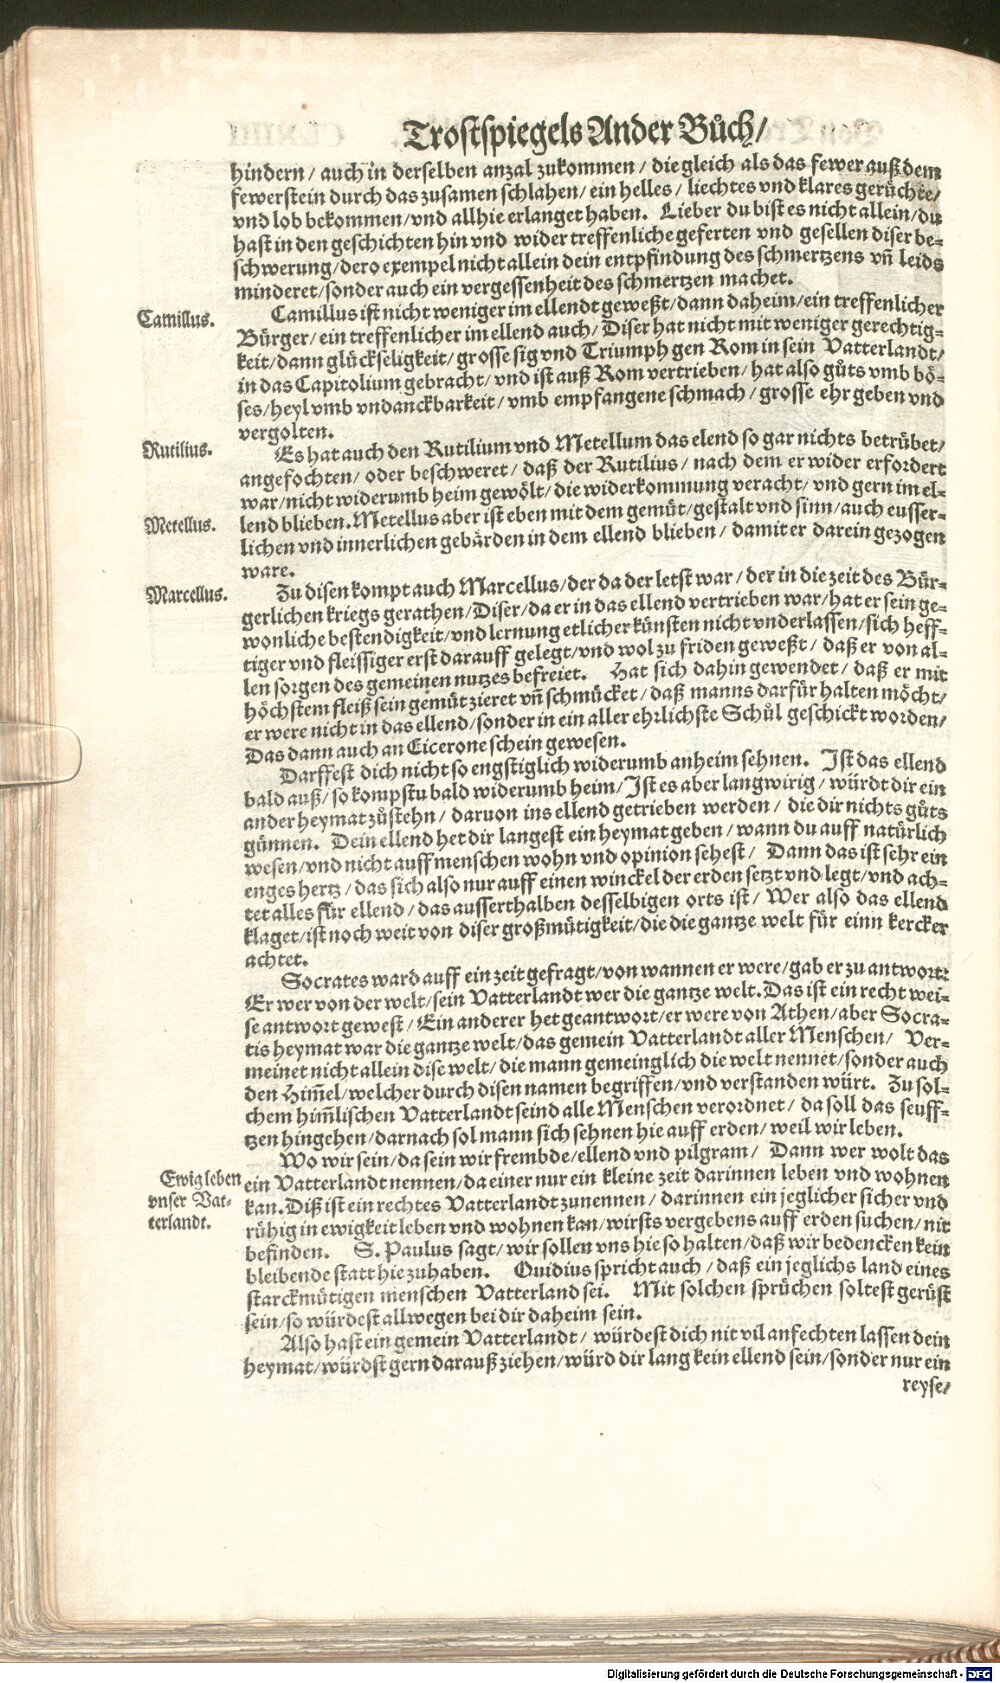 Trostspiegels Ander Bůch/
hindern / auch in derselben anzal zukommen / die gleich als das fewer auß dem
fewerstein durch das zusamen schlahen / ein helles / liechtes vnd klares gerüchte/
vnd lob bekommen / vnd allhie erlanget haben. Lieber du bist es nicht allein / du
hast in den geschichten hin vnd wider treffenliche geferten vnd gesellen diser be-
schwerung / dero exempel nicht allein dein entpfindung des schmertzens vñ leids
minderet / sonder auch ein vergessenheit des schmertzen machet.
Camillus.
Camillus ist nicht weniger im ellendt geweßt / dann daheim / ein treffenlicher
Bürger / ein treffenlicher im ellend auch / Diser hat nicht mit weniger gerechtig-
keit / dann glückseligkeit / grosse sig vnd Triumph gen Rom in sein Vatterlandt/
in das Capitolium gebracht / vnd ist auß Rom vertrieben / hat also gůts vmb bö-
ses / heyl vmb vndanckbarkeit / vmb empfangene schmach / grosse ehr geben vnd
vergolten.
Rutilius.
Es hat auch den Rutilium vnd Metellum das elend so gar nichts betrübet/
angefochten / oder beschweret / daß der Rutilius / nach dem er wider erfordert
war / nicht widerumb heim gewölt / die widerkommung veracht / vnd gern im el-
Metellus.
lend blieben. Metellus aber ist eben mit dem gemüt / gestalt vnd sinn / auch eusser-
lichen vnd innerlichen gebärden in dem ellend blieben / damit er darein gezogen
ware.
Marcellus.
Zu disen kompt auch Marcellus / der da der letst war / der in die zeit des Bür-
gerlichen kriegs gerathen / Diser / da er in das ellend vertrieben war / hat er sein ge-
wonliche bestendigkeit / vnd lernung etlicher künsten nicht vnderlassen / sich heff-
tiger vnd fleissiger erst darauff gelegt / vnd wol zu friden geweßt / daß er von al-
len sorgen des gemeinen nutzes befreiet. Hat sich dahin gewendet / daß er mit
höchstem fleiß sein gemüt zieret vñ schmücket / daß manns darfür halten möcht/
er were nicht in das ellend / sonder in ein aller ehrlichste Schůl geschickt worden/
Das dann auch an Cicerone schein gewesen.
Darffest dich nicht so engstiglich widerumb anheim sehnen. Ist das ellend
bald auß / so kompstu bald widerumb heim / Ist es aber langwirig / würdt dir ein
ander heymat zůstehn / daruon ins ellend getrieben werden / die dir nichts gůts
günnen. Dein ellend het dir langest ein heymat geben / wann du auff natürlich
wesen / vnd nicht auff menschen wohn vnd opinion sehest / Dann das ist sehr ein
enges hertz / das sich also nur auff einen winckel der erden setzt vnd legt / vnd ach-
tet alles für ellend / das ausserthalben desselbigen orts ist / Wer also das ellend
klaget / ist noch weit von diser großmütigkeit / die die gantze welt für einn kercker
achtet.
Socrates ward auff ein zeit gefragt / von wannen er were / gab er zu antwort:
Er wer von der welt / sein Vatterlandt wer die gantze welt. Das ist ein recht wei-
se antwort gewest / Ein anderer het geantwort / er were von Athen / aber Socra-
tis heymat war die gantze welt / das gemein Vatterlandt aller Menschen / Ver-
meinet nicht allein dise welt / die mann gemeinglich die welt nennet / sonder auch
den Him̃el / welcher durch disen namen begriffen / vnd verstanden würt. Zu sol-
chem him̃lischen Vatterlandt seind alle Menschen verordnet / da soll das seuff-
tzen hingehen / darnach sol mann sich sehnen hie auff erden / weil wir leben.
Wo wir sein / da sein wir frembde / ellend vnd pilgram / Dann wer wolt das
Ewig leben
vnser Vat-
terlandt.
ein Vatterlandt nennen / da einer nur ein kleine zeit darinnen leben vnd wohnen
kan. Diß ist ein rechtes Vatterlandt zunennen / darinnen ein jeglicher sicher vnd
rühig in ewigkeit leben vnd wohnen kan / wirsts vergebens auff erden suchen / nit
befinden. S. Paulus sagt / wir sollen vns hie so halten / daß wir bedencken kein
bleibende statt hie zuhaben. Ouidius spricht auch / daß ein jeglichs land eines
starckmütigen menschen Vatterland sei. Mit solchen sprüchen soltest gerüst
sein / so würdest allwegen bei dir daheim sein.
Also hast ein gemein Vatterlandt / würdest dich nit vil anfechten lassen dein
heymat / würdst gern darauß ziehen / würd dir lang kein ellend sein / sonder nur ein
reyse/
Digitalisierung gefördert durch die Deutsche Forschungsgemeinschaft - DFG